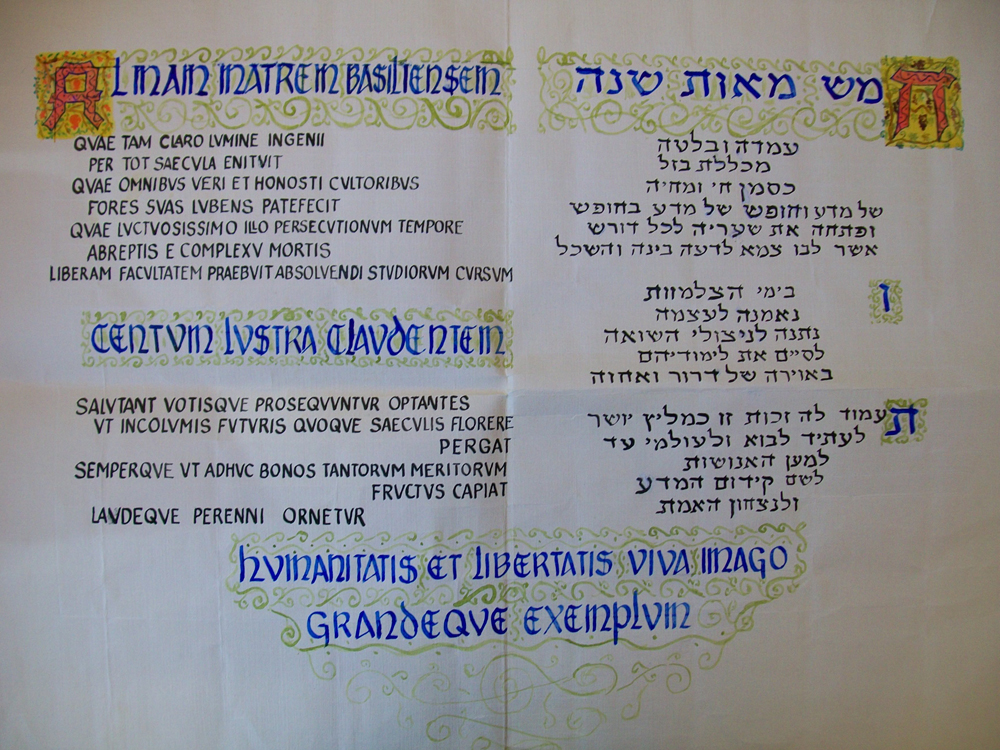 ALMAM MATREM BASILIENSEM
QVAE TAM CLARO LVMINE INGENII
PER TOT SAECVLA ENITVIT
QVAE OMNIBVS VERI ET HONOSTI CVLTORIBVS
FORES SVAS LVBENS PATEFECIT
QVAE LVCTVOSISSIMO ILLO PERSECVTIONVM TEMPORE
ABREPTIS E COMPLEXV MORTIS
LIBERAM FACVLTATEM PRAEBVIT ABSOLVENDI STVDIORVM CVRSVM
CENTVM LVSTRA CLAVDENTEM
SALVTANT VOTISQVE PROSEQVVNTVR OPTANTES
VT INCOLVMIS FVTVRIS QVOQVE SAECVLIS FLORERE
PERGAT
SEMPERQVE VT ADHVC BONOS TANTORVM MERITORVM
FRVCTVS CAPIAT
LAVDEQVE PERENNI ORNETVR
חמש מאות שנה
עמדה ובלטה
מכללת בזל
כסמן חי ומחיה
של מדע וחופש של מדע בחופש
ופתחה את שעריה לכל דורש
אשר לבו צמא לדעה בינה והשכל
ו
בימי הצלמוות
נאמנה לעצמה
נתנה לניצולי השואה
לסיים את לימודיהם
באוירה של דרור ואחוה
תעמוד לה זכות זו כמליץ יושר
לעתיד לבוא ולעולמי עד
למען האנושות
לשם קידום המדע
ולנצחון האמת
HVMANITATIS ET LIBERTATIS VIVA IMAGO
GRANDEQVE EXEMPLVM